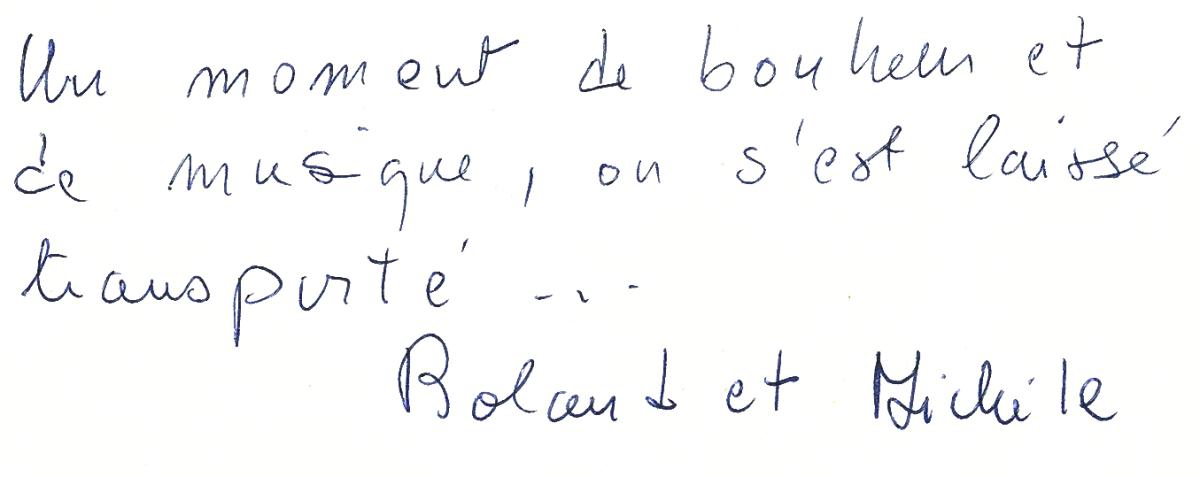 Un moment de bonheur et
de musique, on s'est laissé
transporté ...
Roland et Michèle